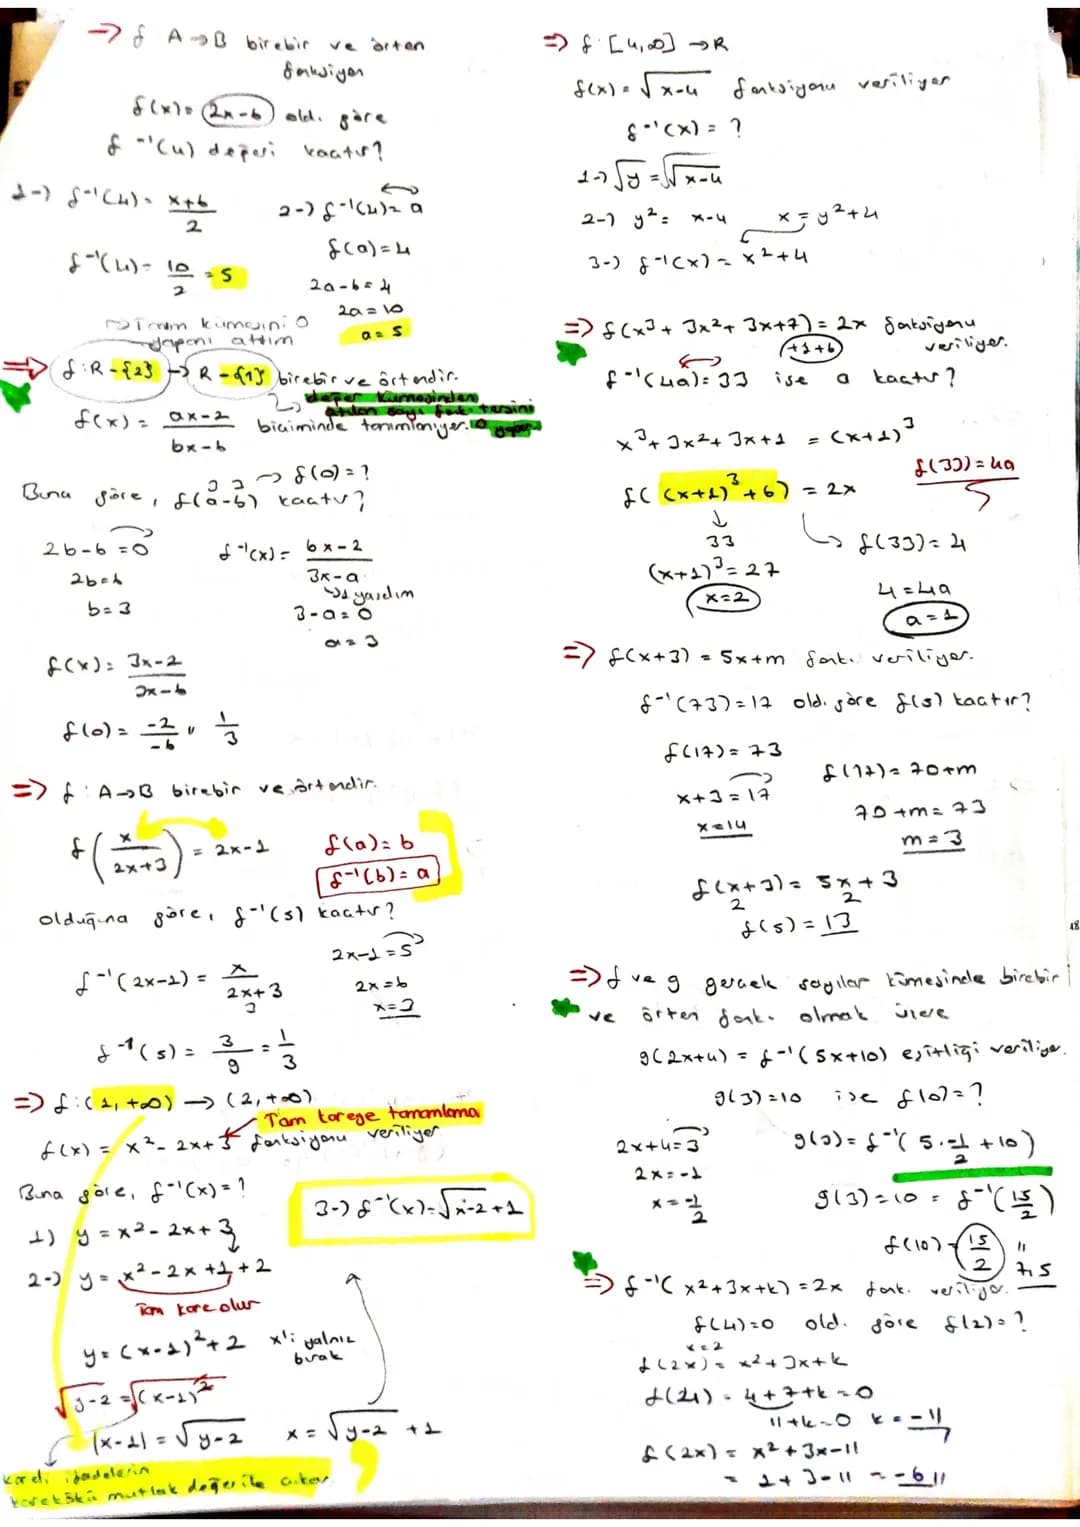 => f: A→B birebir ve örten
fonksiyon
f(x)= 2x-6 old. göre
f⁻¹(4) değeri kaçtır?
1-) f⁻¹(4)= x+6/2
2-) f⁻¹(4)= a
f⁻¹(4)= 10/2 = 5
f(a)=4
2a-6=4
2a=10
a=5
Tanım kümesini 0
yapanı attım
=> f:R-{2} → R-{1} birebir ve örtendir.
değer kümesinden
atılan sayı fonk. tersini
f(x)= ax-2/bx-6 biçiminde tanımlanıyor.
→ f(0)=?
Buna göre, f(a-b) kaçtır?
3 3
2b-6=0
2b=6
b=3
f⁻¹(x)= 6x-2/3x-a
→1 yazdım
3-a=0
a=3
f(x)= 3x-2/3x-6
f(0)= -2/-6 = 1/3
=> f: A→B birebir ve örtendir.
f(x/2x+3) = 2x-1
f(a)=b
f⁻¹(b)=a
olduğuna göre, f⁻¹(5) kaçtır?
f⁻¹(2x-1)= x/2x+3
3
2x-1=5
2x=6
x=3
f⁻¹(5)= 3/9 = 1/3
=> f:(1,+∞) → (2,+∞)
Tam kareye tamamlama
f(x)= x²-2x+3 fonksiyonu veriliyor
Buna göre, f⁻¹(x)=?
1) y= x²-2x+3
2-) y= x²-2x+1+2
Tam kare olur
3-) f⁻¹(x)=√x-2+1
y=(x-1)²+2 x'i yalnız
bırak
√y-2 = √(x-1)²
|x-1| = √y-2 x= √y-2 +1
kareli ifadelerin
karekökü mutlak değer ile çıkar.
=> f: [4,∞] →R
f(x)= √x-4 fonksiyonu veriliyor
f⁻¹(x) = ?
1-) √y = √x-4
2-) y²= x-4 x= y²+4
3-) f⁻¹(x)= x²+4
=> f(x³+3x²+3x+7)= 2x fonksiyonu
veriliyor.
+1+6
f⁻¹(4a)= 33 ise a kaçtır?
x³+3x²+3x+1 = (x+1)³
f(33)=4a
f((x+1)³+6) = 2x
33
f(33)=4
(x+1)³=27
x=2
4=4a
a=1
=> f(x+3) = 5x+m fonk. veriliyor.
f⁻¹(73)=17 old. göre f(5) kaçtır?
f(17)=73
x+3=17
x=14
f(17)= 70+m
70+m=73
m=3
f(x+3)= 5x+3
2 2
f(5)=13
18
=> f ve g gerçek sayılar kümesinde birebir
ve örten fonk. olmak üzere
g(2x+4) = f⁻¹(5x+10) eşitliği veriliyor.
g(3)=10 ise f(10)=?
2x+4=3
2x=-1
x=-1/2
g(3)= f⁻¹(5.-1/2+10)
g(3)=10 = f⁻¹(15/2)
f(10)= 15/2
"
7,5
=> f⁻¹(x²+3x+k)=2x fonk. veriliyor.
f(4)=0 old. göre f(2)=?
x=2
f(2x)= x²+3x+k
f(4)= 4+7+k=0
11+k=0 k=-11
f(2x)= x²+3x-11
= 1+3-11 = -6